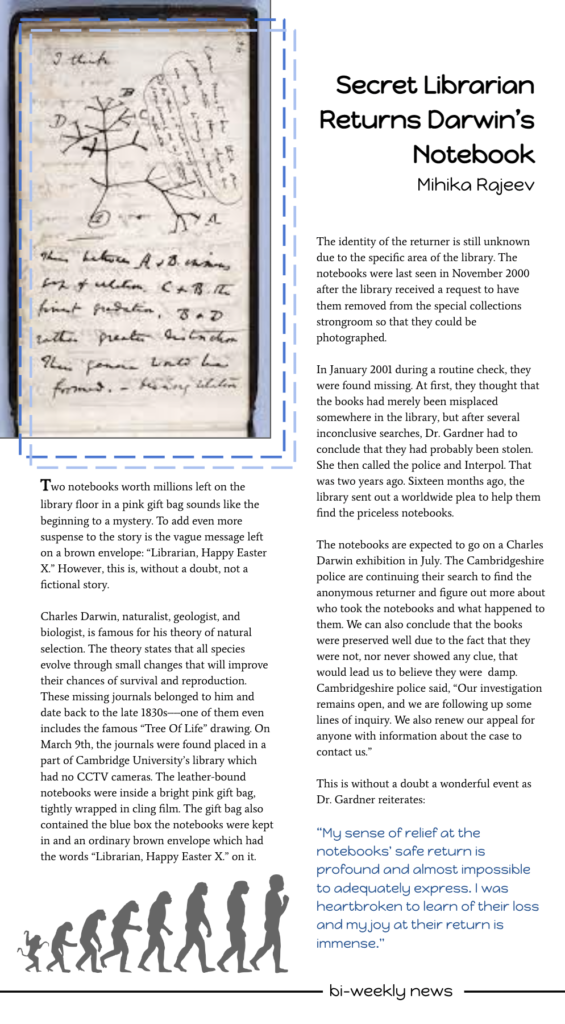 I think
B
D
C
A
1
Secret Librarian
Returns Darwin's
Notebook
Mihika Rajeev
Two notebooks worth millions left on the
library floor in a pink gift bag sounds like the
beginning to a mystery. To add even more
suspense to the story is the vague message left
on a brown envelope: “Librarian, Happy Easter
X.” However, this is, without a doubt, not a
fictional story.
Charles Darwin, naturalist, geologist, and
biologist, is famous for his theory of natural
selection. The theory states that all species
evolve through small changes that will improve
their chances of survival and reproduction.
These missing journals belonged to him and
date back to the late 1830s—one of them even
includes the famous “Tree Of Life” drawing. On
March 9th, the journals were found placed in a
part of Cambridge University's library which
had no CCTV cameras. The leather-bound
notebooks were inside a bright pink gift bag,
tightly wrapped in cling film. The gift bag also
contained the blue box the notebooks were kept
in and an ordinary brown envelope which had
the words “Librarian, Happy Easter X.” on it.
The identity of the returner is still unknown
due to the specific area of the library. The
notebooks were last seen in November 2000
after the library received a request to have
them removed from the special collections
strongroom so that they could be
photographed.
In January 2001 during a routine check, they
were found missing. At first, they thought that
the books had merely been misplaced
somewhere in the library, but after several
inconclusive searches, Dr. Gardner had to
conclude that they had probably been stolen.
She then called the police and Interpol. That
was two years ago. Sixteen months ago, the
library sent out a worldwide plea to help them
find the priceless notebooks.
The notebooks are expected to go on a Charles
Darwin exhibition in July. The Cambridgeshire
police are continuing their search to find the
anonymous returner and figure out more about
who took the notebooks and what happened to
them. We can also conclude that the books
were preserved well due to the fact that they
were not, nor never showed any clue, that
would lead us to believe they were damp.
Cambridgeshire police said, “Our investigation
remains open, and we are following up some
lines of inquiry. We also renew our appeal for
anyone with information about the case to
contact us.”
This is without a doubt a wonderful event as
Dr. Gardner reiterates:
“My sense of relief at the
notebooks' safe return is
profound and almost impossible
to adequately express. I was
heartbroken to learn of their loss
and my joy at their return is
immense.”
bi-weekly news